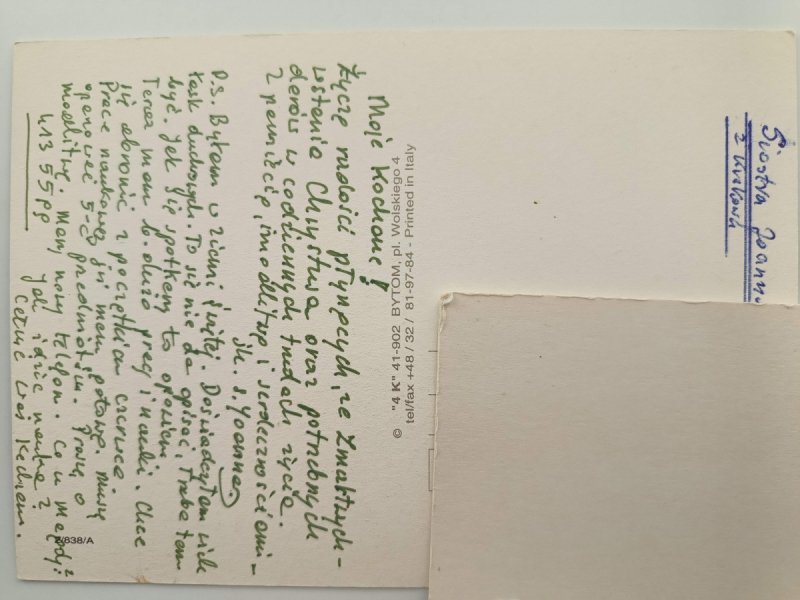 Moje Kochane!
Życzę radości płynących, ze Zmartwych-
wstania Chrystusa oraz potrzebnych
darów w codziennych trudach życia.
Z pamięcią, modlitwą i serdecznościami-
s. Joanna.
P.S. Byłam w Ziemi Świętej. Doświadczyłam wiele
łask duchowych. To się nie da opisać, trzeba tam
być. Jak się spotkamy to opowiem
Teraz mam b. dużo pracy i nauki. Chcę
się obronić z początkiem czerwca.
Pracę naukową już mam połowę. Muszę
opanować 5-ć przedmiotów. Proszę o
modlitwę. Mamy nowy telefon. Co u Magdy?
413 55 99
Jak idzie nauka?
Całuję Was
© "4 K" 41-902 BYTOM, pl. Wolskiego 4
tel/fax +48 / 32 / 81-97-84 - Printed in Italy
838/A
Siostra Joanna
z Krakowa